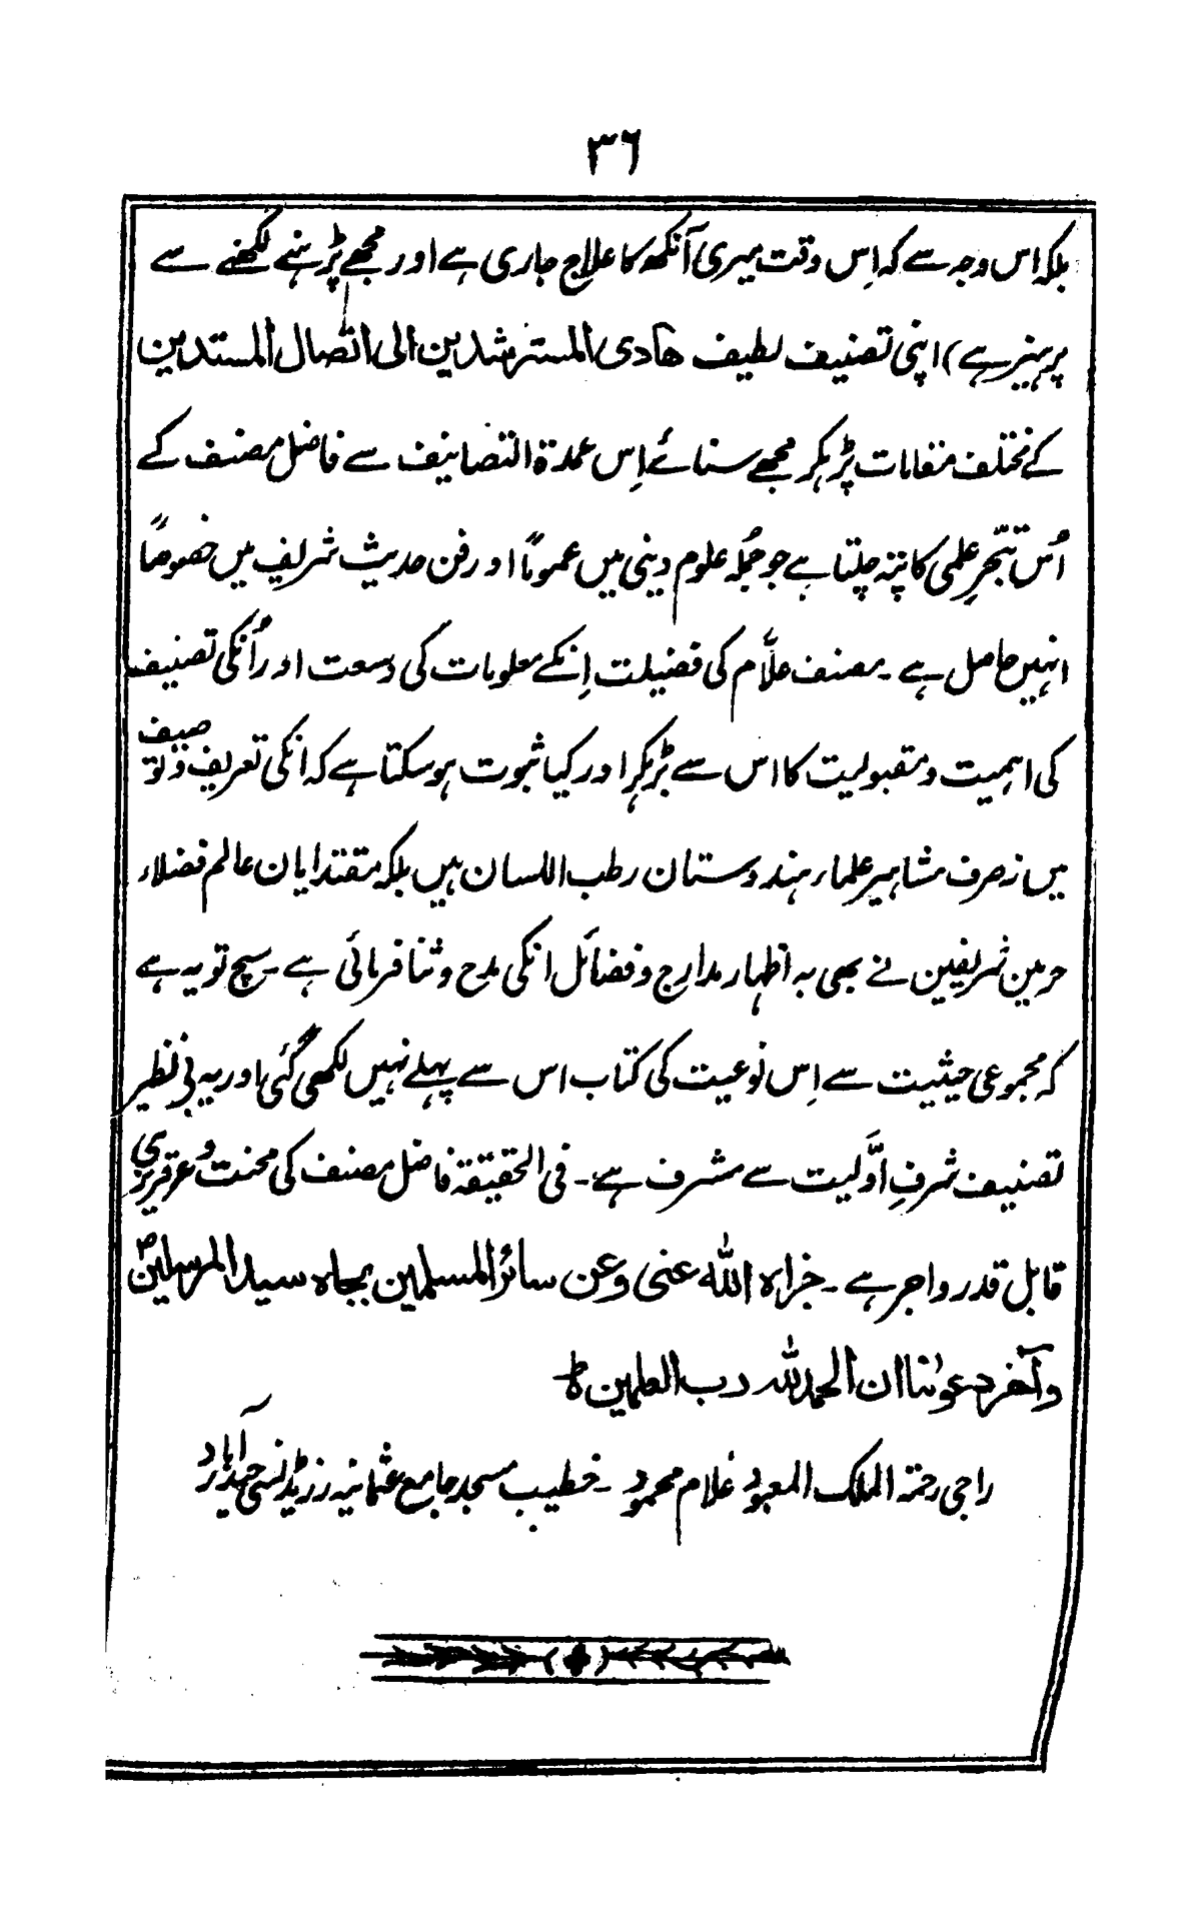 ۳۶
بلکہ اس وجہ سے کہ اِس وقت میری آنکھ کا علاج جاری ہے اور مجھے پڑہنے لکھنے سے
پرہیز ہے) اپنی تصنیف لطیف ھادی المسترشدین الی اتصال المستدین
کے مختلف مقامات پڑہکر مجھے سنائے اِس عمدۃ التصانیف سے فاضل مصنف کے
اُس تبحّرِ علمی کا پتہ چلتا ہے جو جُملہ علوم دینی میں عموماً اور فن حدیث شریف میں خصوصاً
انہیں حاصل ہے ۔ مصنف علّام کی فضیلت اِنکے معلومات کی وسعت اور اُنکی تصنیف
کی اہمیت و مقبولیت کا اس سے بڑہکر اور کیا ثبوت ہو سکتا ہے کہ انکی تعریف و توصیف
میں نہ صرف مشاہیر علماء ہندوستان رطب اللسان ہیں بلکہ مقتدایان عالم فضلاء
حرمین شریفین نے بھی بہ اظہار مدارج و فضائل انکی مدح و ثنا فرمائی ہے ۔ سچ تو یہ ہے
کہ مجموعی حیثیت سے اِس نوعیت کی کتاب اس سے پہلے نہیں لکھی گئی اور یہ بی نظیر
تصنیف شرفِ اوّلیت سے مشرف ہے ۔ فی الحقیقۃ فاضل مصنف کی محنت و عرقریزی
قابل قدر واجر ہے ۔ جزاہ اللہ عنی وعن سائر المسلمین بجاہ سید المرسلینؐ
وآخر دعوٰنا ان الحمد للہ رب العلمین ط
راجی رحمۃ الملک المعبود غلام محمود ۔ خطیب مسجد جامع عثمانیہ رزیڈنسی حیدرآباد